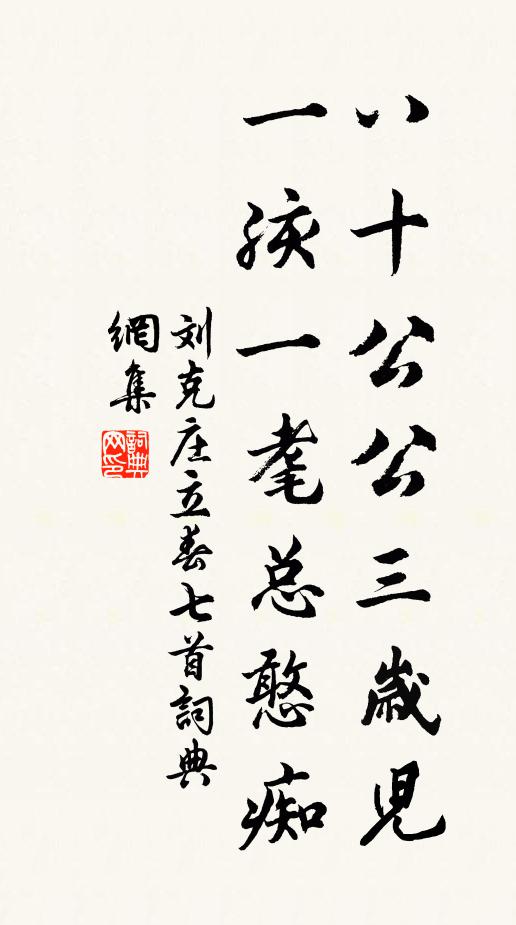 八十公公三歲児
一孩一耄总憨痴
刘克庄立春七首詞典
網集
詞典
网印